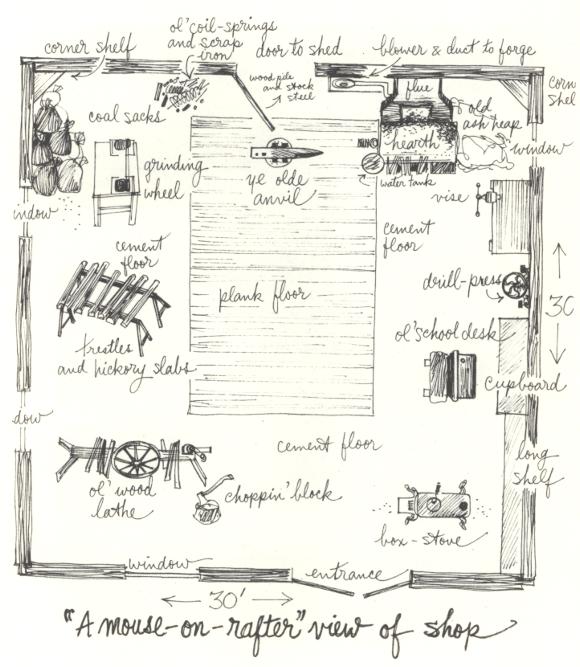 ol' coil-springs
and scrap
iron
corner shelf
door to shed
blower & duct to forge
wood pile
and stock
steel
flue
corn
shel
coal sacks
ol' old
ash heap
hearth
window
grinding
wheel
ye olde
anvil
water tank
vise
indow
cement
floor
cement
floor
drill-press
plank floor
30
ol' school desk
trestles
and hickory slabs
cupboard
dow
cement floor
long
shelf
ol' wood
lathe
choppin' block
box-stove
window
entrance
30'
"A mouse-on-rafter" view of shop